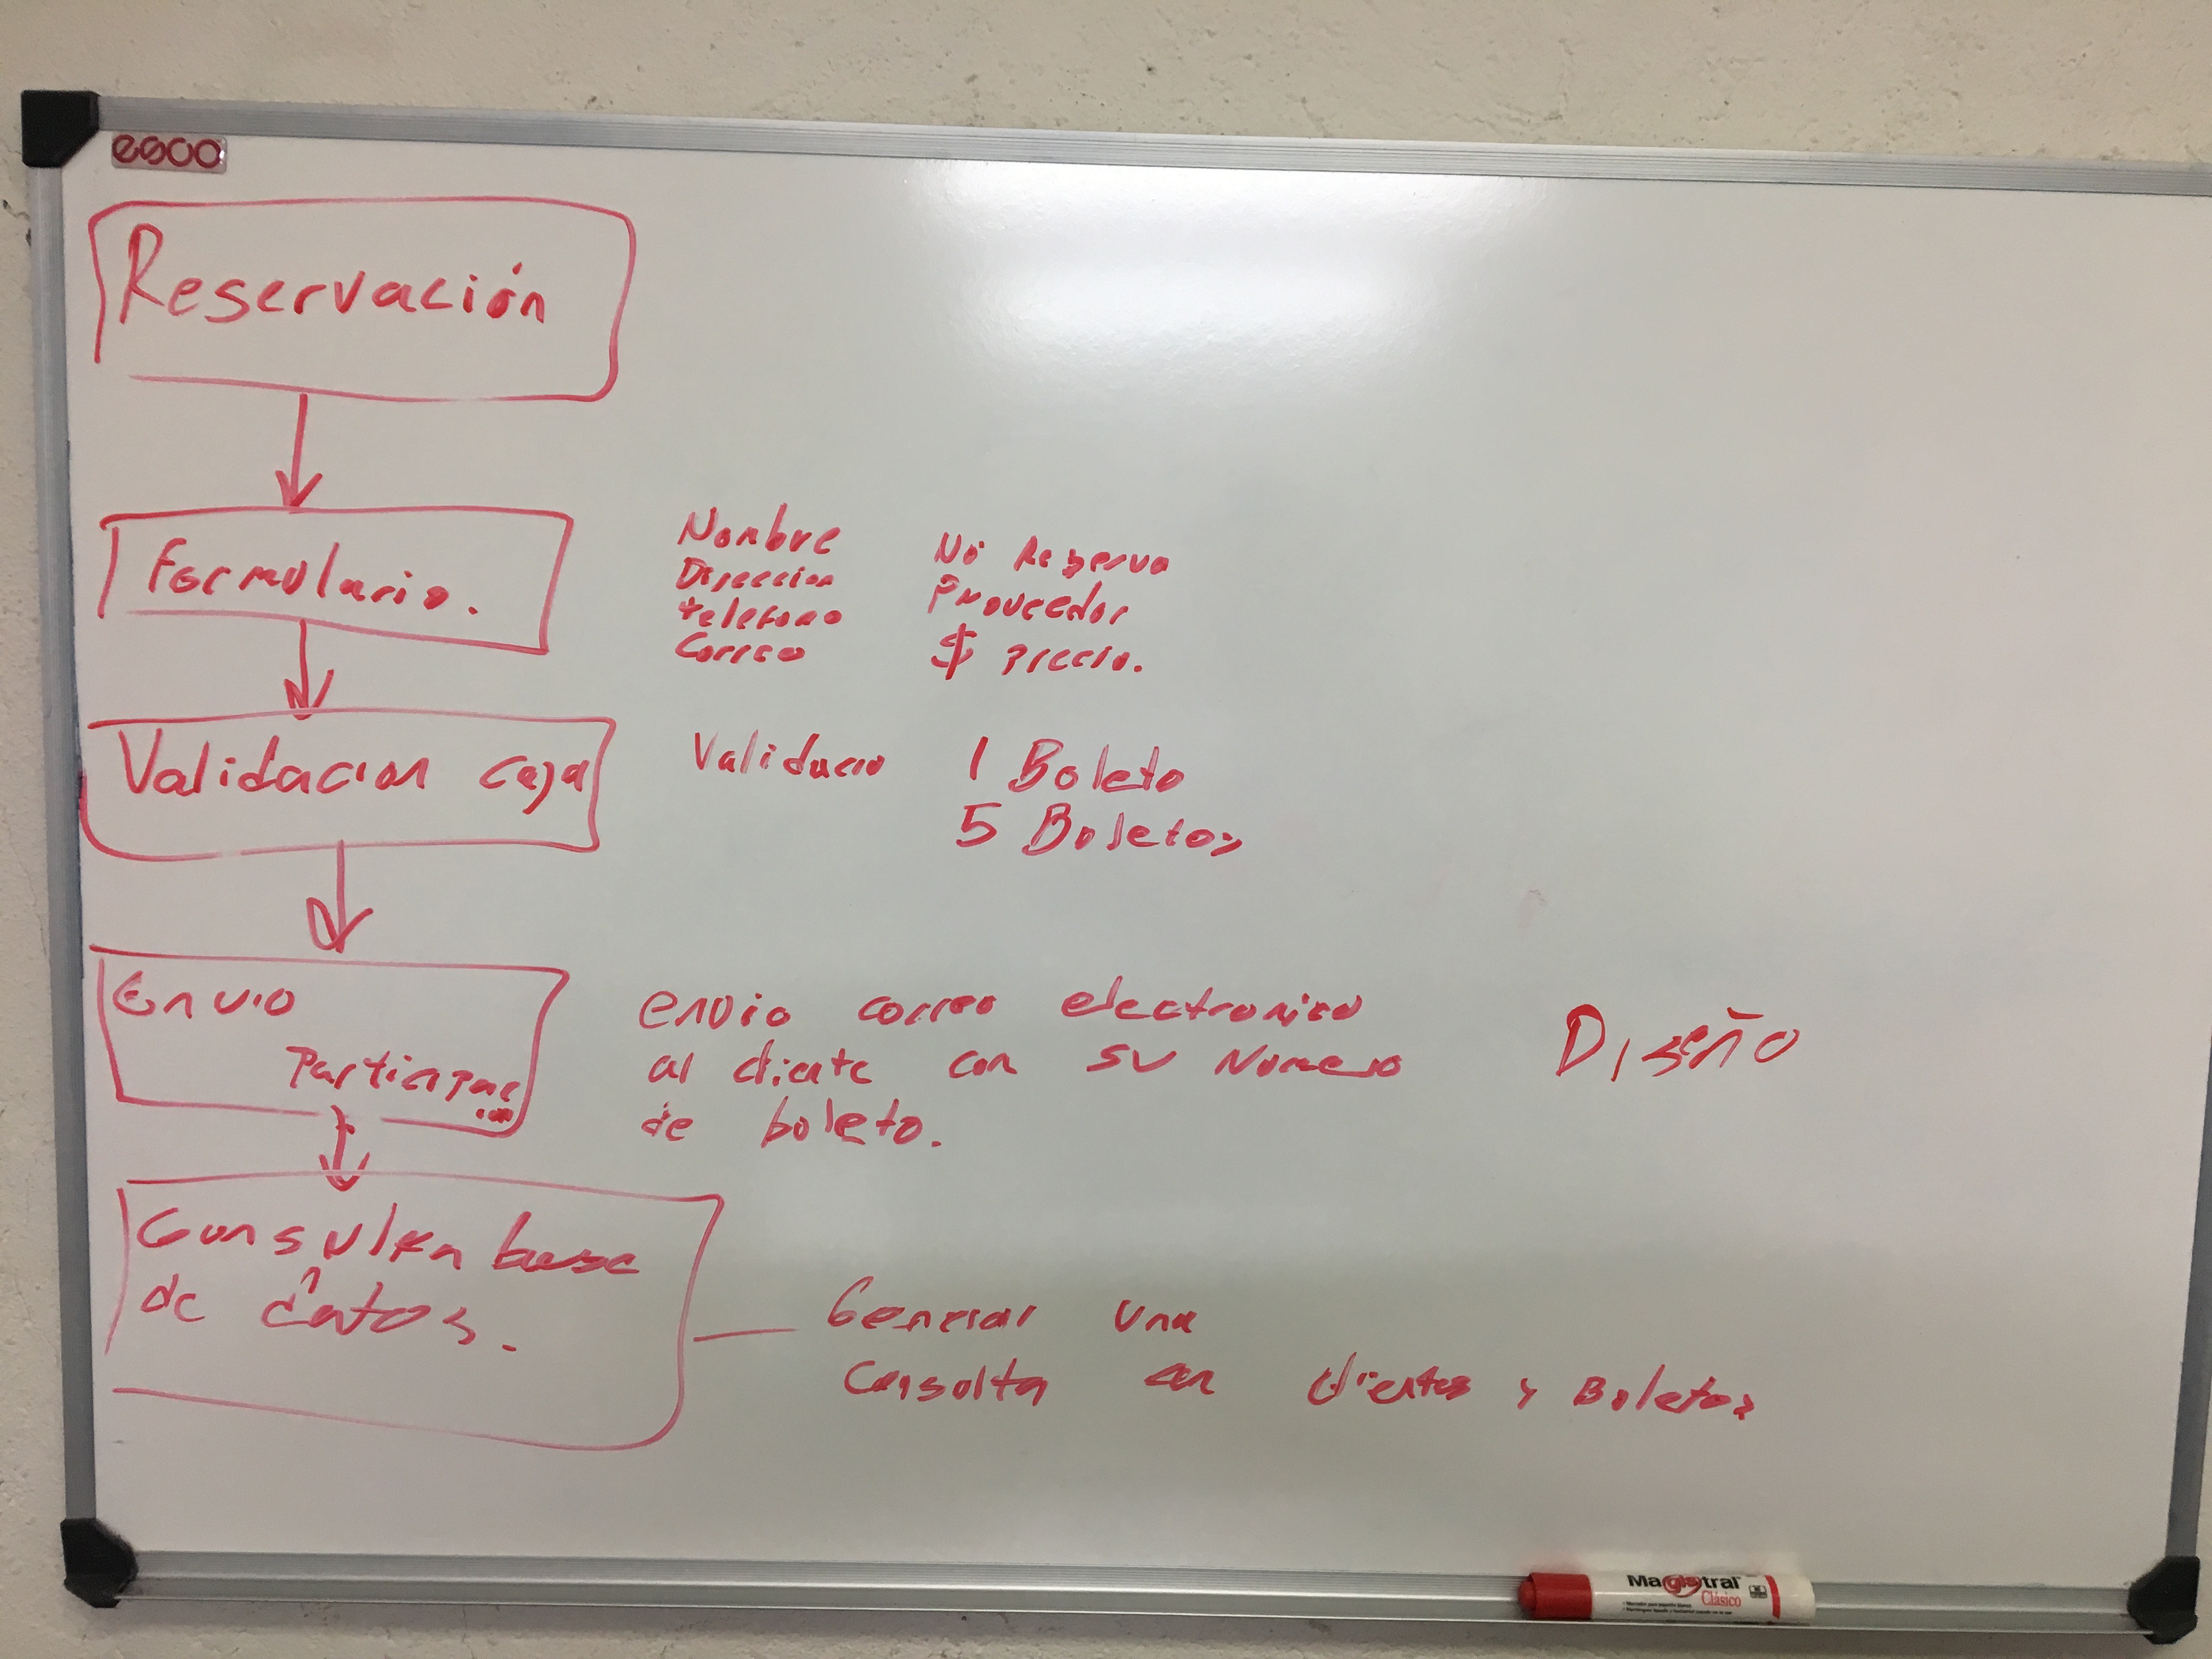 esco
Reservación
Formulario.
Nombre
Direccion
telefono
Correo
No Reserva
Proveedor
$ precio.
Validacion caja
Validacio
1 Boleto
5 Boletos
Envio
Participac
ion
envio correo electronico
al cliente con su Numero
de boleto.
Diseño
Consulta base
de datos.
Generar una
Consulta en clientes y Boletos
Magistral
Clásico